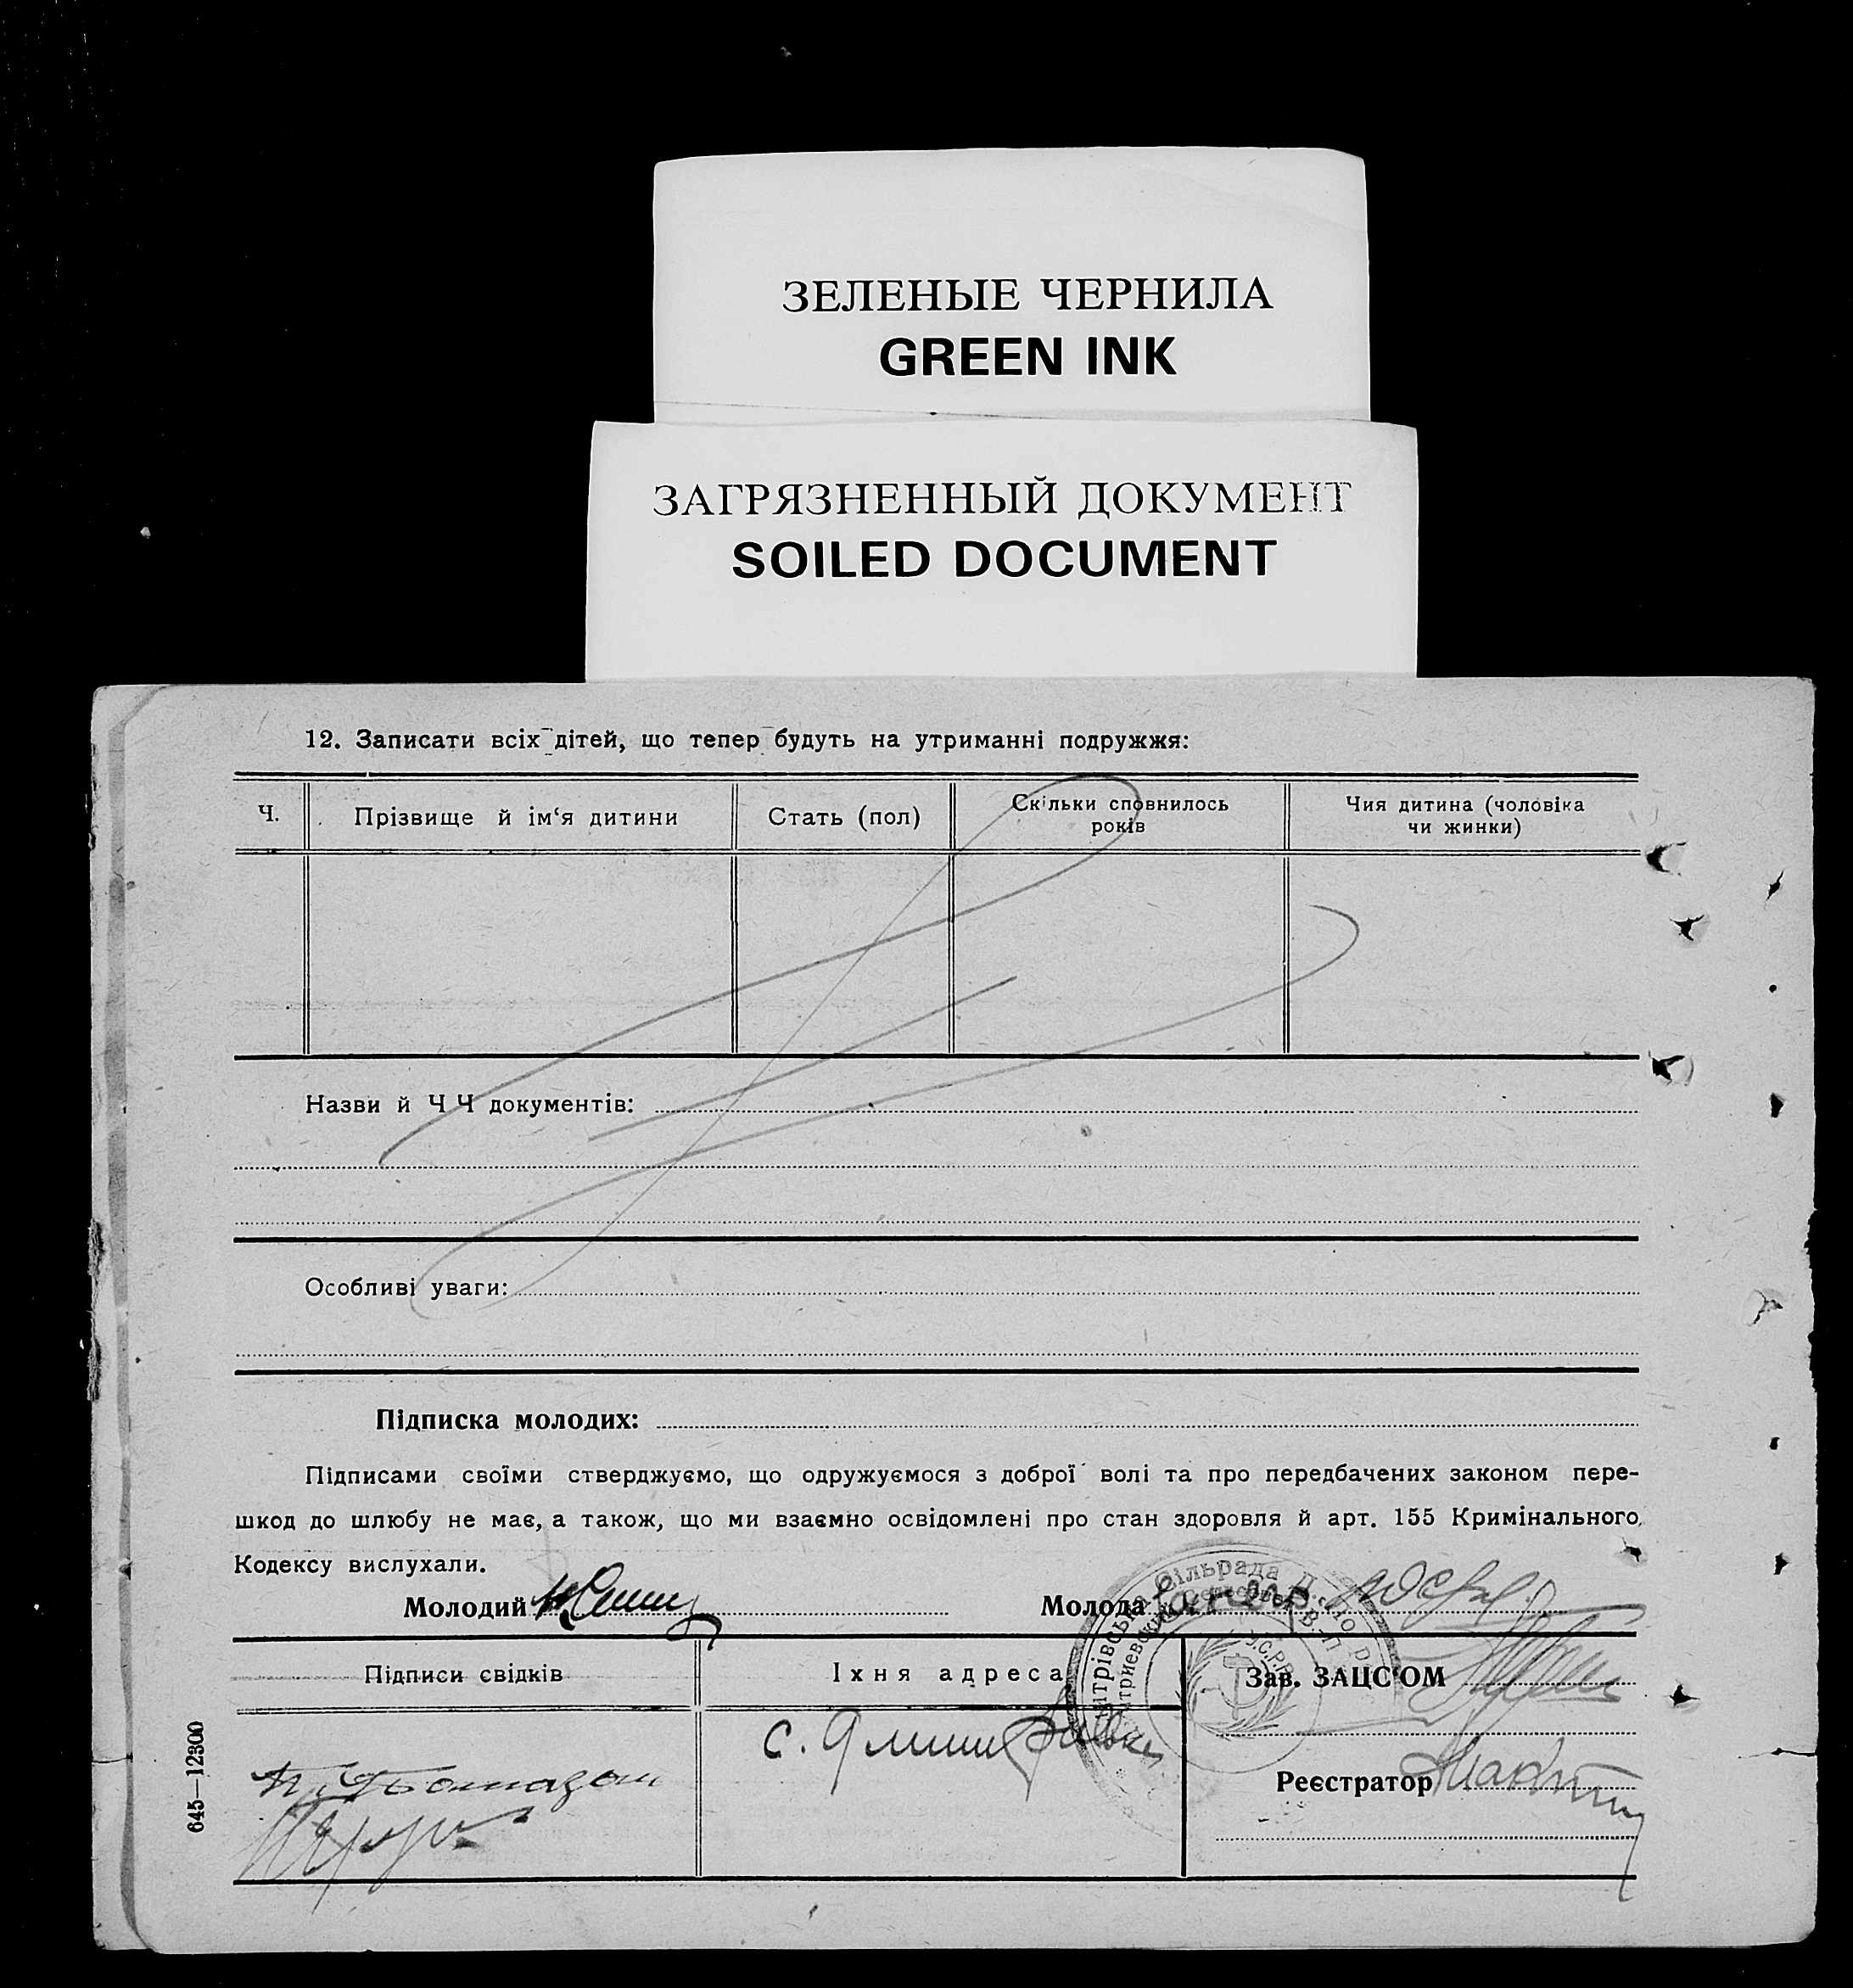 ЗЕЛЕНЫЕ ЧЕРНИЛА
GREEN INK
ЗАГРЯЗНЕННЫЙ ДОКУМЕНТ
SOILED DOCUMENT
12. Записати всіх дітей, що тепер будуть на утриманні подружжя:
Ч.
Прізвище й ім‘я дитини
Стать (пол)
Скільки сповнилось
років
Чия дитина (чоловіка
чи жинки)
Назви й Ч Ч документів:
Особливі уваги:
Підписка молодих:
Підписами своїми стверджуємо, що одружуємося з доброї волі та про передбачених законом пере-
шкод до шлюбу не має, а також, що ми взаємно освідомлені про стан здоровля й арт. 155 Кримінального
Кодексу вислухали.
Молодий
Молода
Сільрада
Підписи свідків
Їхня адреса
У.С.Р.Р.
Зав. ЗАЦС‘ОМ
с.
Реєстратор
645—12300